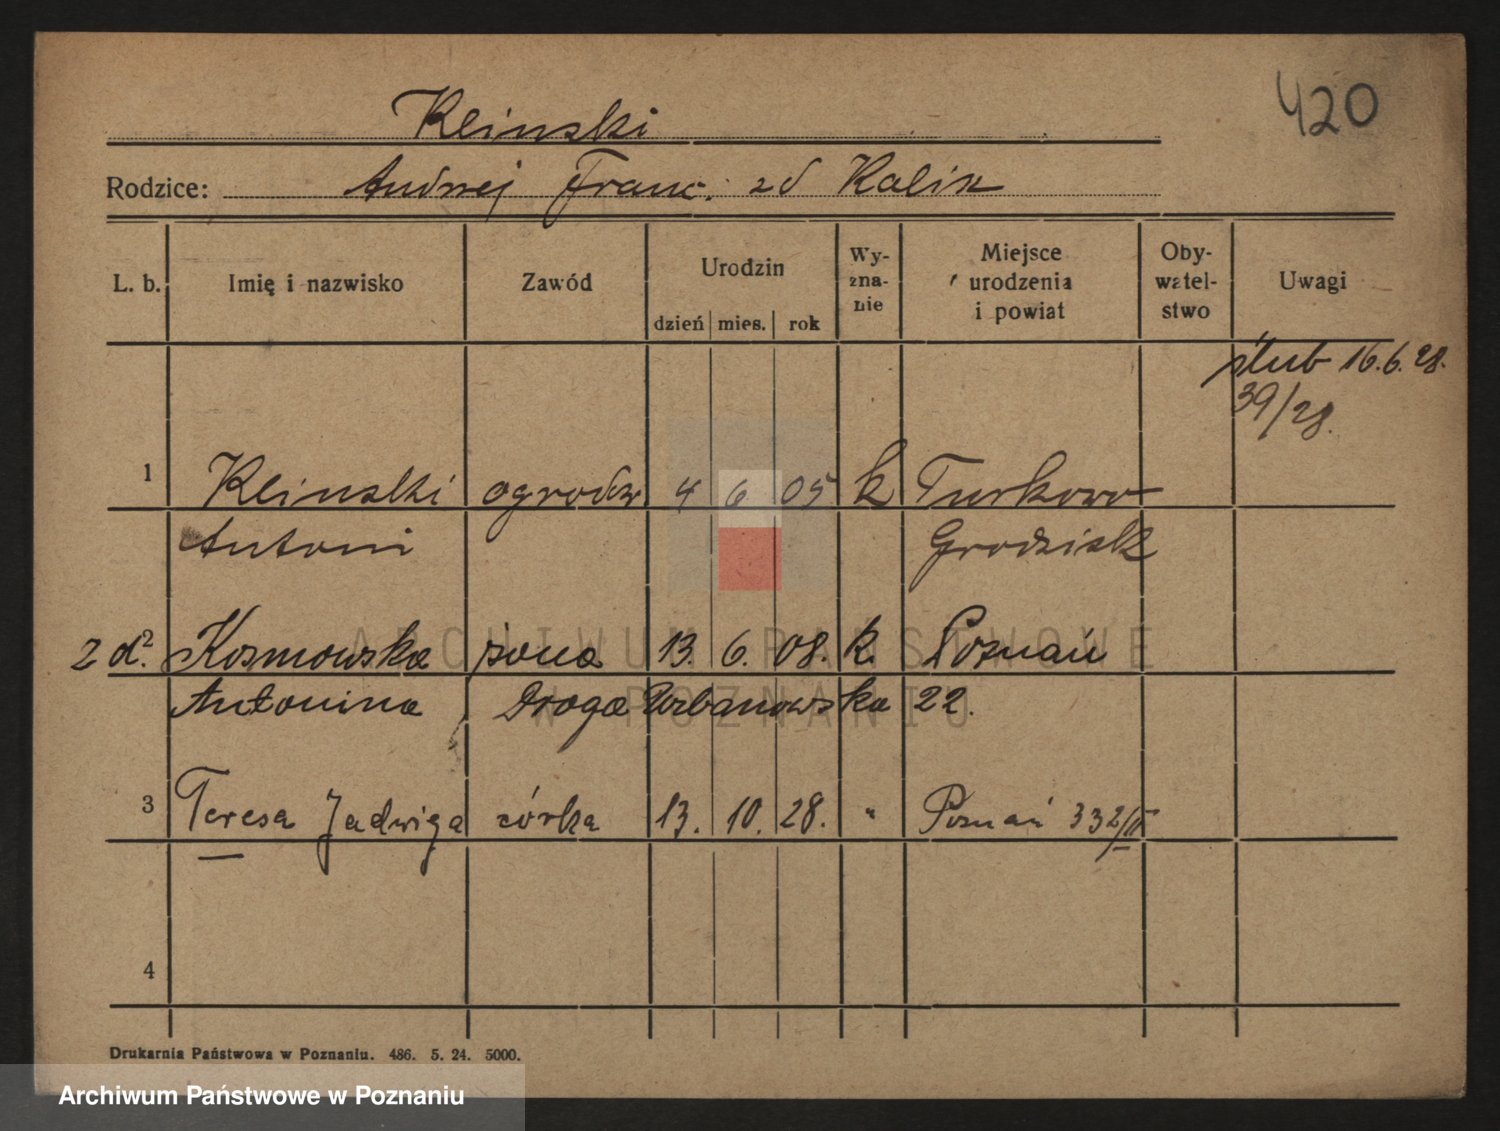 420
Klinski
Rodzice: Andrzej Franc. zd Kalik
L. b. Imię i nazwisko Zawód Urodzin dzień mies. rok Wy-zna-nie Miejsce urodzenia i powiat Oby-watel-stwo Uwagi
ślub 16.6.28.
39/28.
1 Klinski ogrodw. 4 6 05 k Turkowo
Antoni Grodzisk
2 zd. Kosmowska żona 13. 6. 08. k. Poznań
Antonina Droga Urbanowska 22.
3 Teresa Jadwiga córka 13. 10. 28. " Poznań 332/II
4
Drukarnia Państwowa w Poznaniu. 486. 5. 24. 5000.
ARCHIWUM PAŃSTWOWE
W POZNANIU
Archiwum Państwowe w Poznaniu